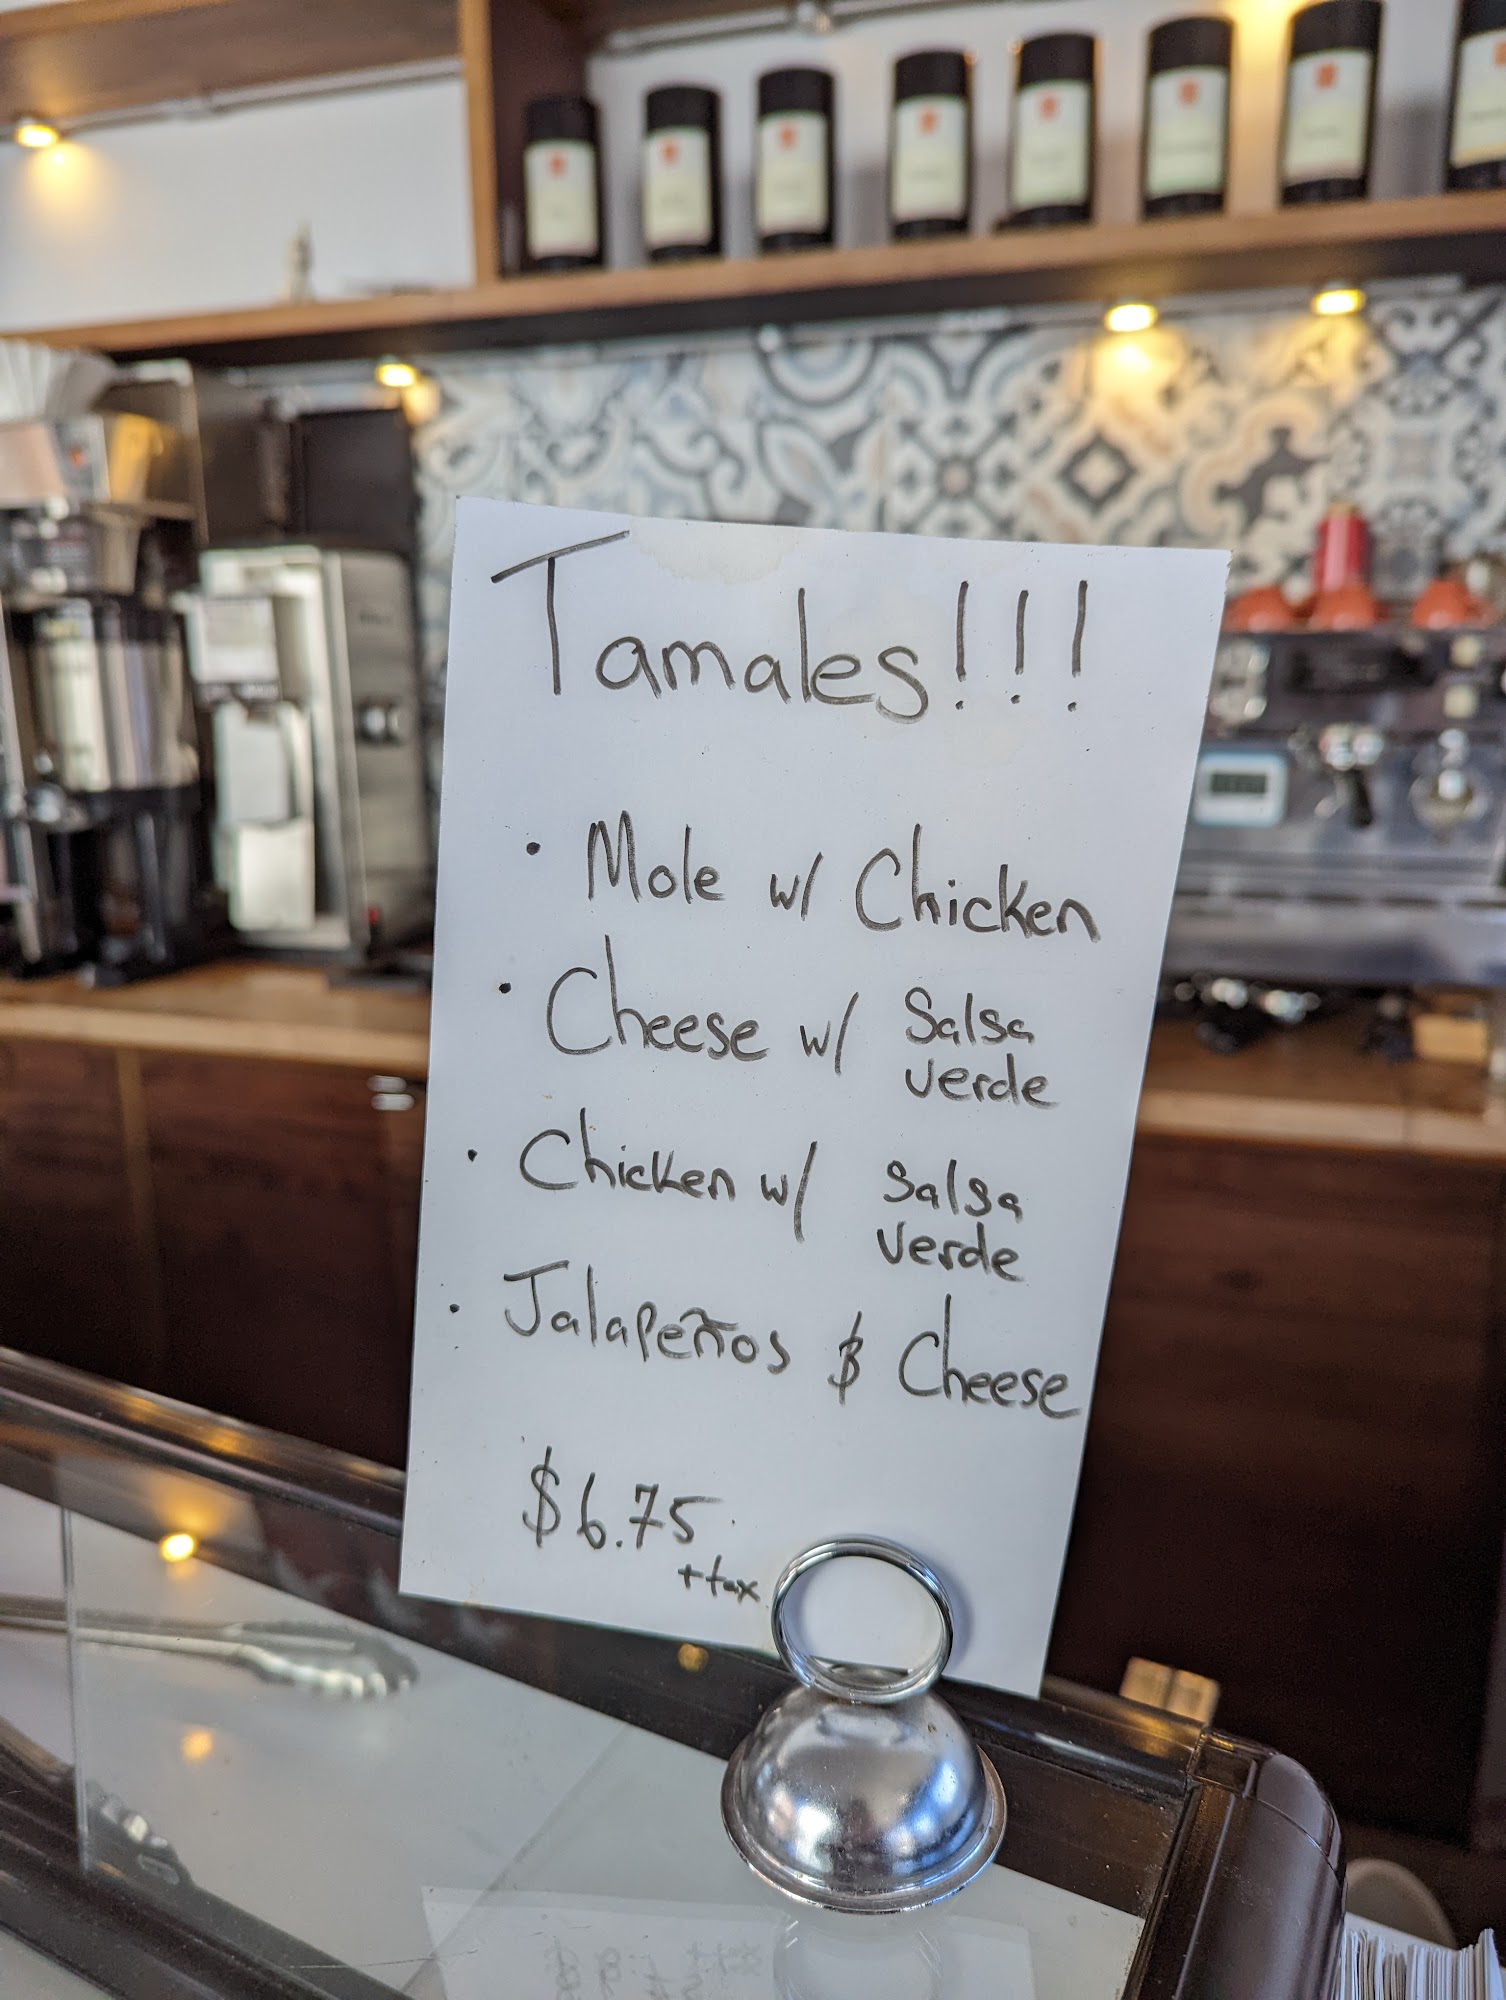 Tamales!!!
• Mole w/ Chicken
• Cheese w/ Salsa
Verde
• Chicken w/ Salsa
Verde
• Jalapeños & Cheese
$6.75
+tax